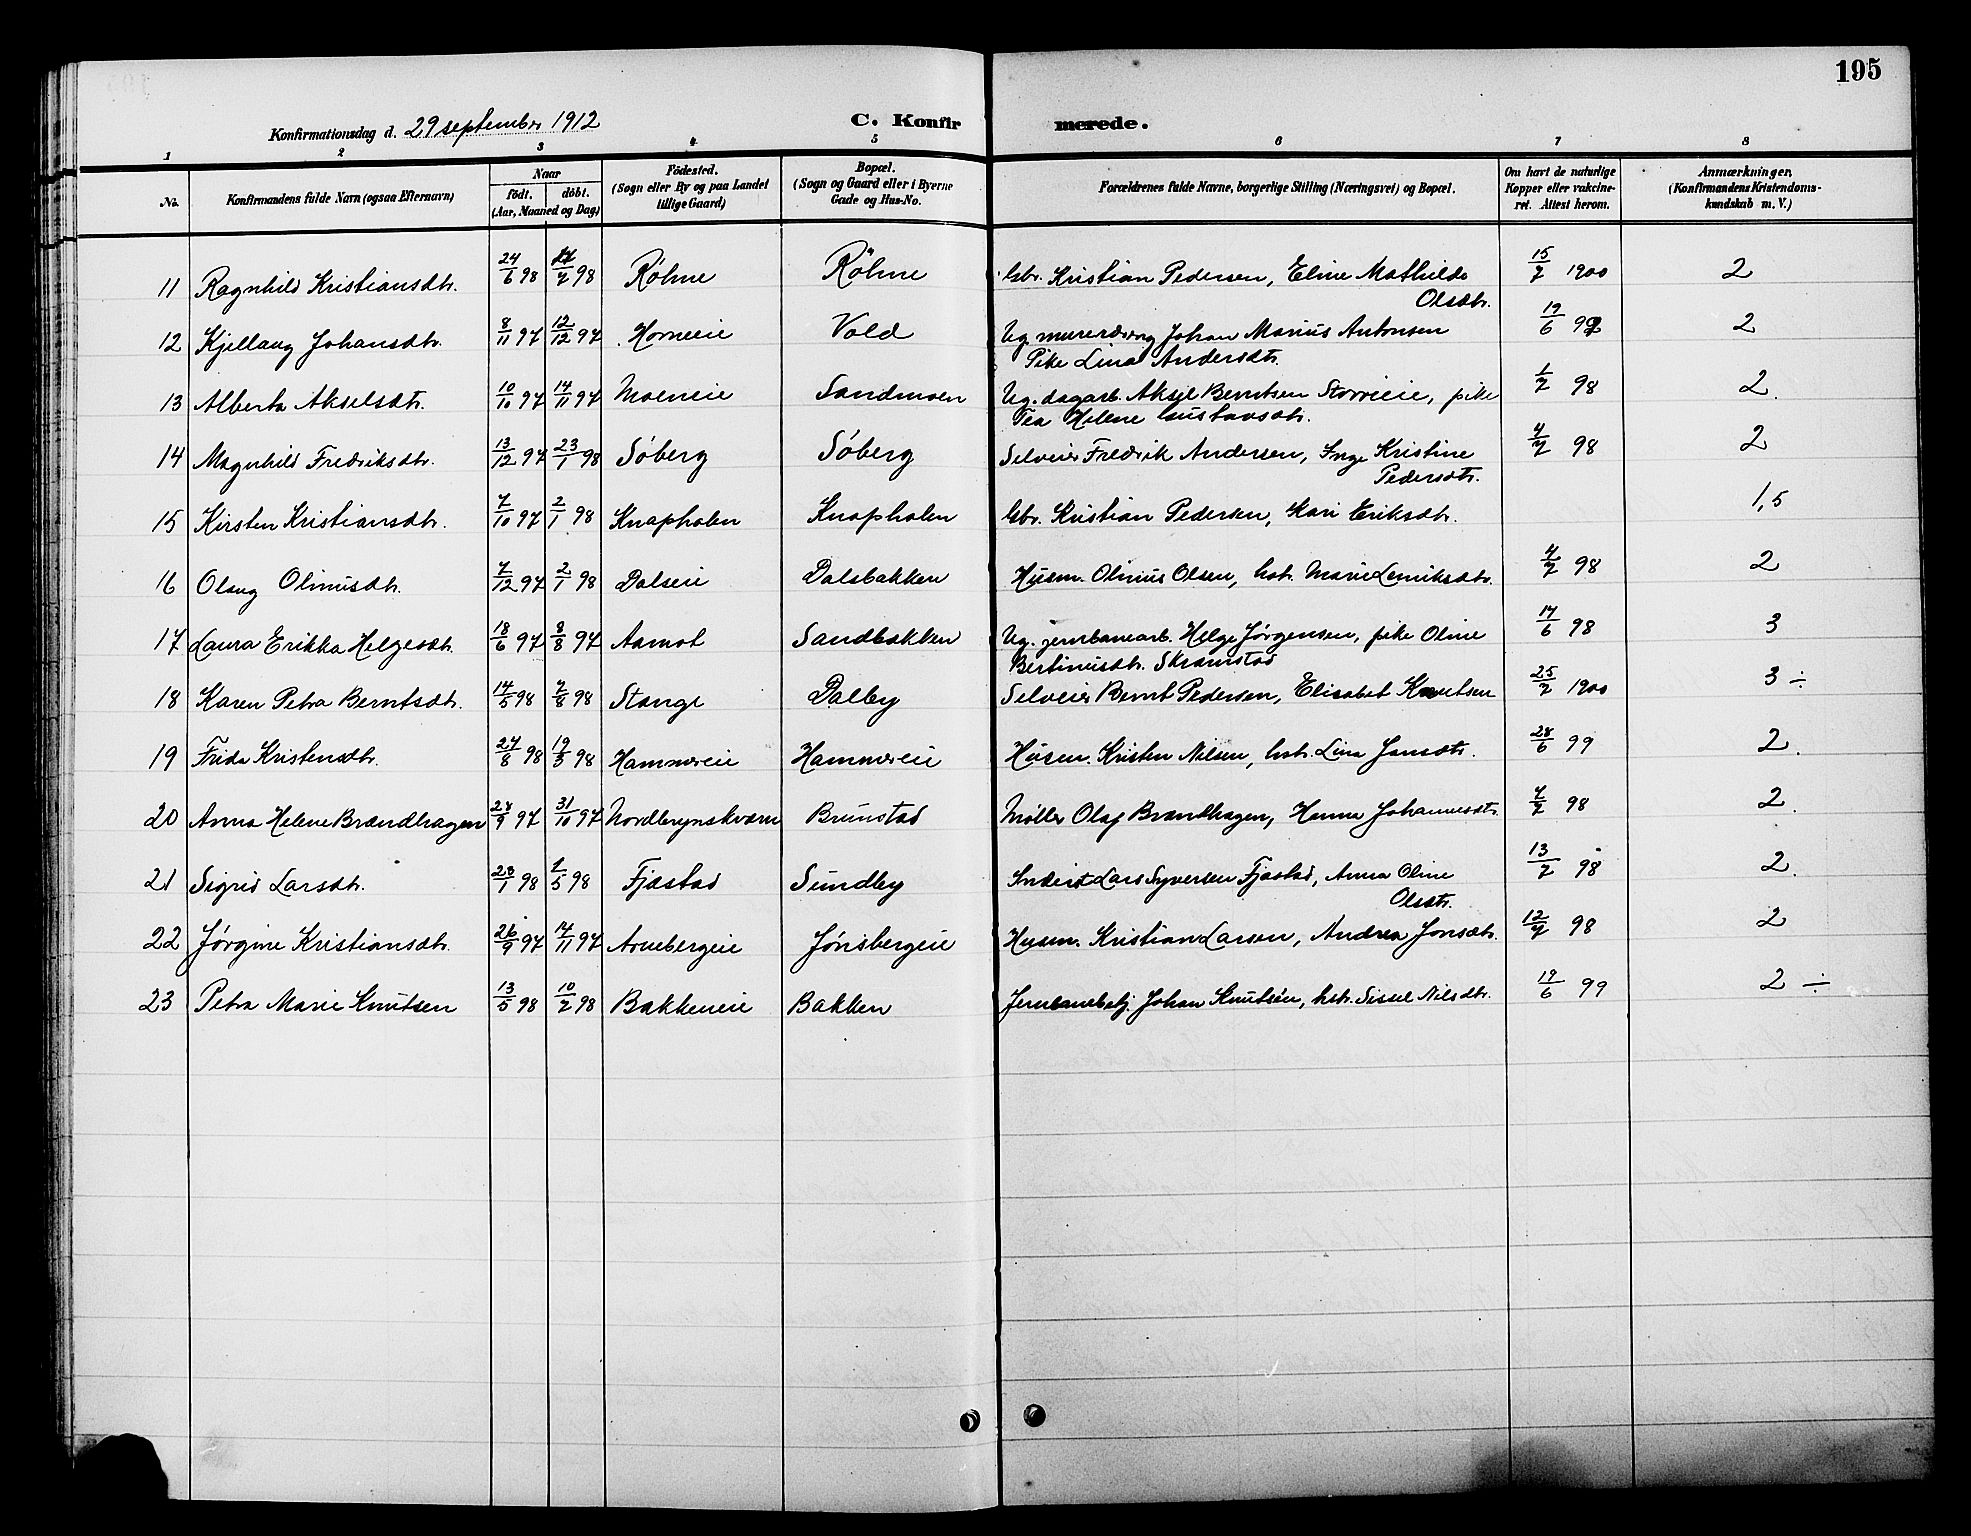 195
Konfirmationsdag d. 29 september 1912
C. Konfirmerede.
1 2 3 4 5 6 7 8
No. Konfirmandens fulde Navn (ogsaa Efternavn) Naar født. døbt. (Aar, Maaned og Dag) Födested. (Sogn eller By og paa Landet tillige Gaard) Bopæl. (Sogn og Gaard eller i Byerne Gade og Hus-No. Forældrenes fulde Navne, borgerlige Stilling (Næringsvei) og Bopæl. Om havt de naturlige Kopper eller vakcineret. Attest herom. Anmærkninger, (Konfirmandens Kristendomskundskab m. V.)
11 Ragnhild Kristiansdtr. 24/6 98 /7 98 Røhne Røhne Gbr. Kristian Pedersen, Eline Mathilde Olsdtr. 15/7 1900 2
12 Kjellaug Johansdtr. 8/11 97 12/12 97 Horneie Vold Ug. murerdreng Johan Marius Antonsen 19/6 99 2
Pike Lina Andersdtr.
13 Alberta Akselsdtr. 10/10 97 14/11 97 Moeneie Sandmoen Ug. dagarb. Aksel Berntsen Storreie, pike 1/7 98 2.
Tea Helene Gustavsdtr.
14 Magnhild Fredriksdtr. 13/12 97 23/1 98 Søberg Søberg Selveier Fredrik Andersen, Inge Kristine Pedersdtr. 4/7 98 2
15 Kirsten Kristiansdtr. 7/10 97 2/1 98 Knapholen Knapholen Gbr. Kristian Pedersen, Kari Eriksdtr. 1,5
16 Olaug Olinusdtr. 7/12 97 2/1 98 Dalseie Dalsbakken Husm. Olinus Olsen, hst. Marie Lauriksdtr. 4/7 98 2
17 Laura Erikka Helgesdtr. 18/6 97 8/8 97 Aamot Sandbakken Ug. jernbanearb. Helge Jørgensen, pike Oline 17/6 98 3
Bertinusdtr. Skramstad
18 Karen Petra Berntsdtr. 14/5 98 7/8 98 Stange Dalby Selveier Bernt Pedersen, Elisabet Knutsen 25/7 1900 3 ÷
19 Frida Kristensdtr. 27/8 98 19/3 98 Hammereie Hammereie Husm. Kristen Nilsen, hst. Lina Jansdtr. 28/6 99 2.
20 Anna Helene Brændhagen 28/9 97 31/10 97 Nordbrynskværn Brunstad Møller Olaf Brændhagen, Hanna Johannesdtr. 4/7 98 2.
21 Sigrid Larsdtr. 23/1 98 1/5 98 Fjæstad Sundby Inderst Lars Syversen Fjæstad, Anna Oline Olsdtr. 13/7 98 2.
22 Jørgine Kristiansdtr. 26/9 97 14/11 97 Arnebergeie Jønsbergeie Husm. Kristian Larsen, Andrea Jonsdtr. 12/7 98 2
23 Petra Marie Knutsen 13/5 98 10/7 98 Bakkeneie Bakken Jernbanebetj. Johan Knutsen, hst. Sissel Nilsdtr. 19/6 99 2 ÷